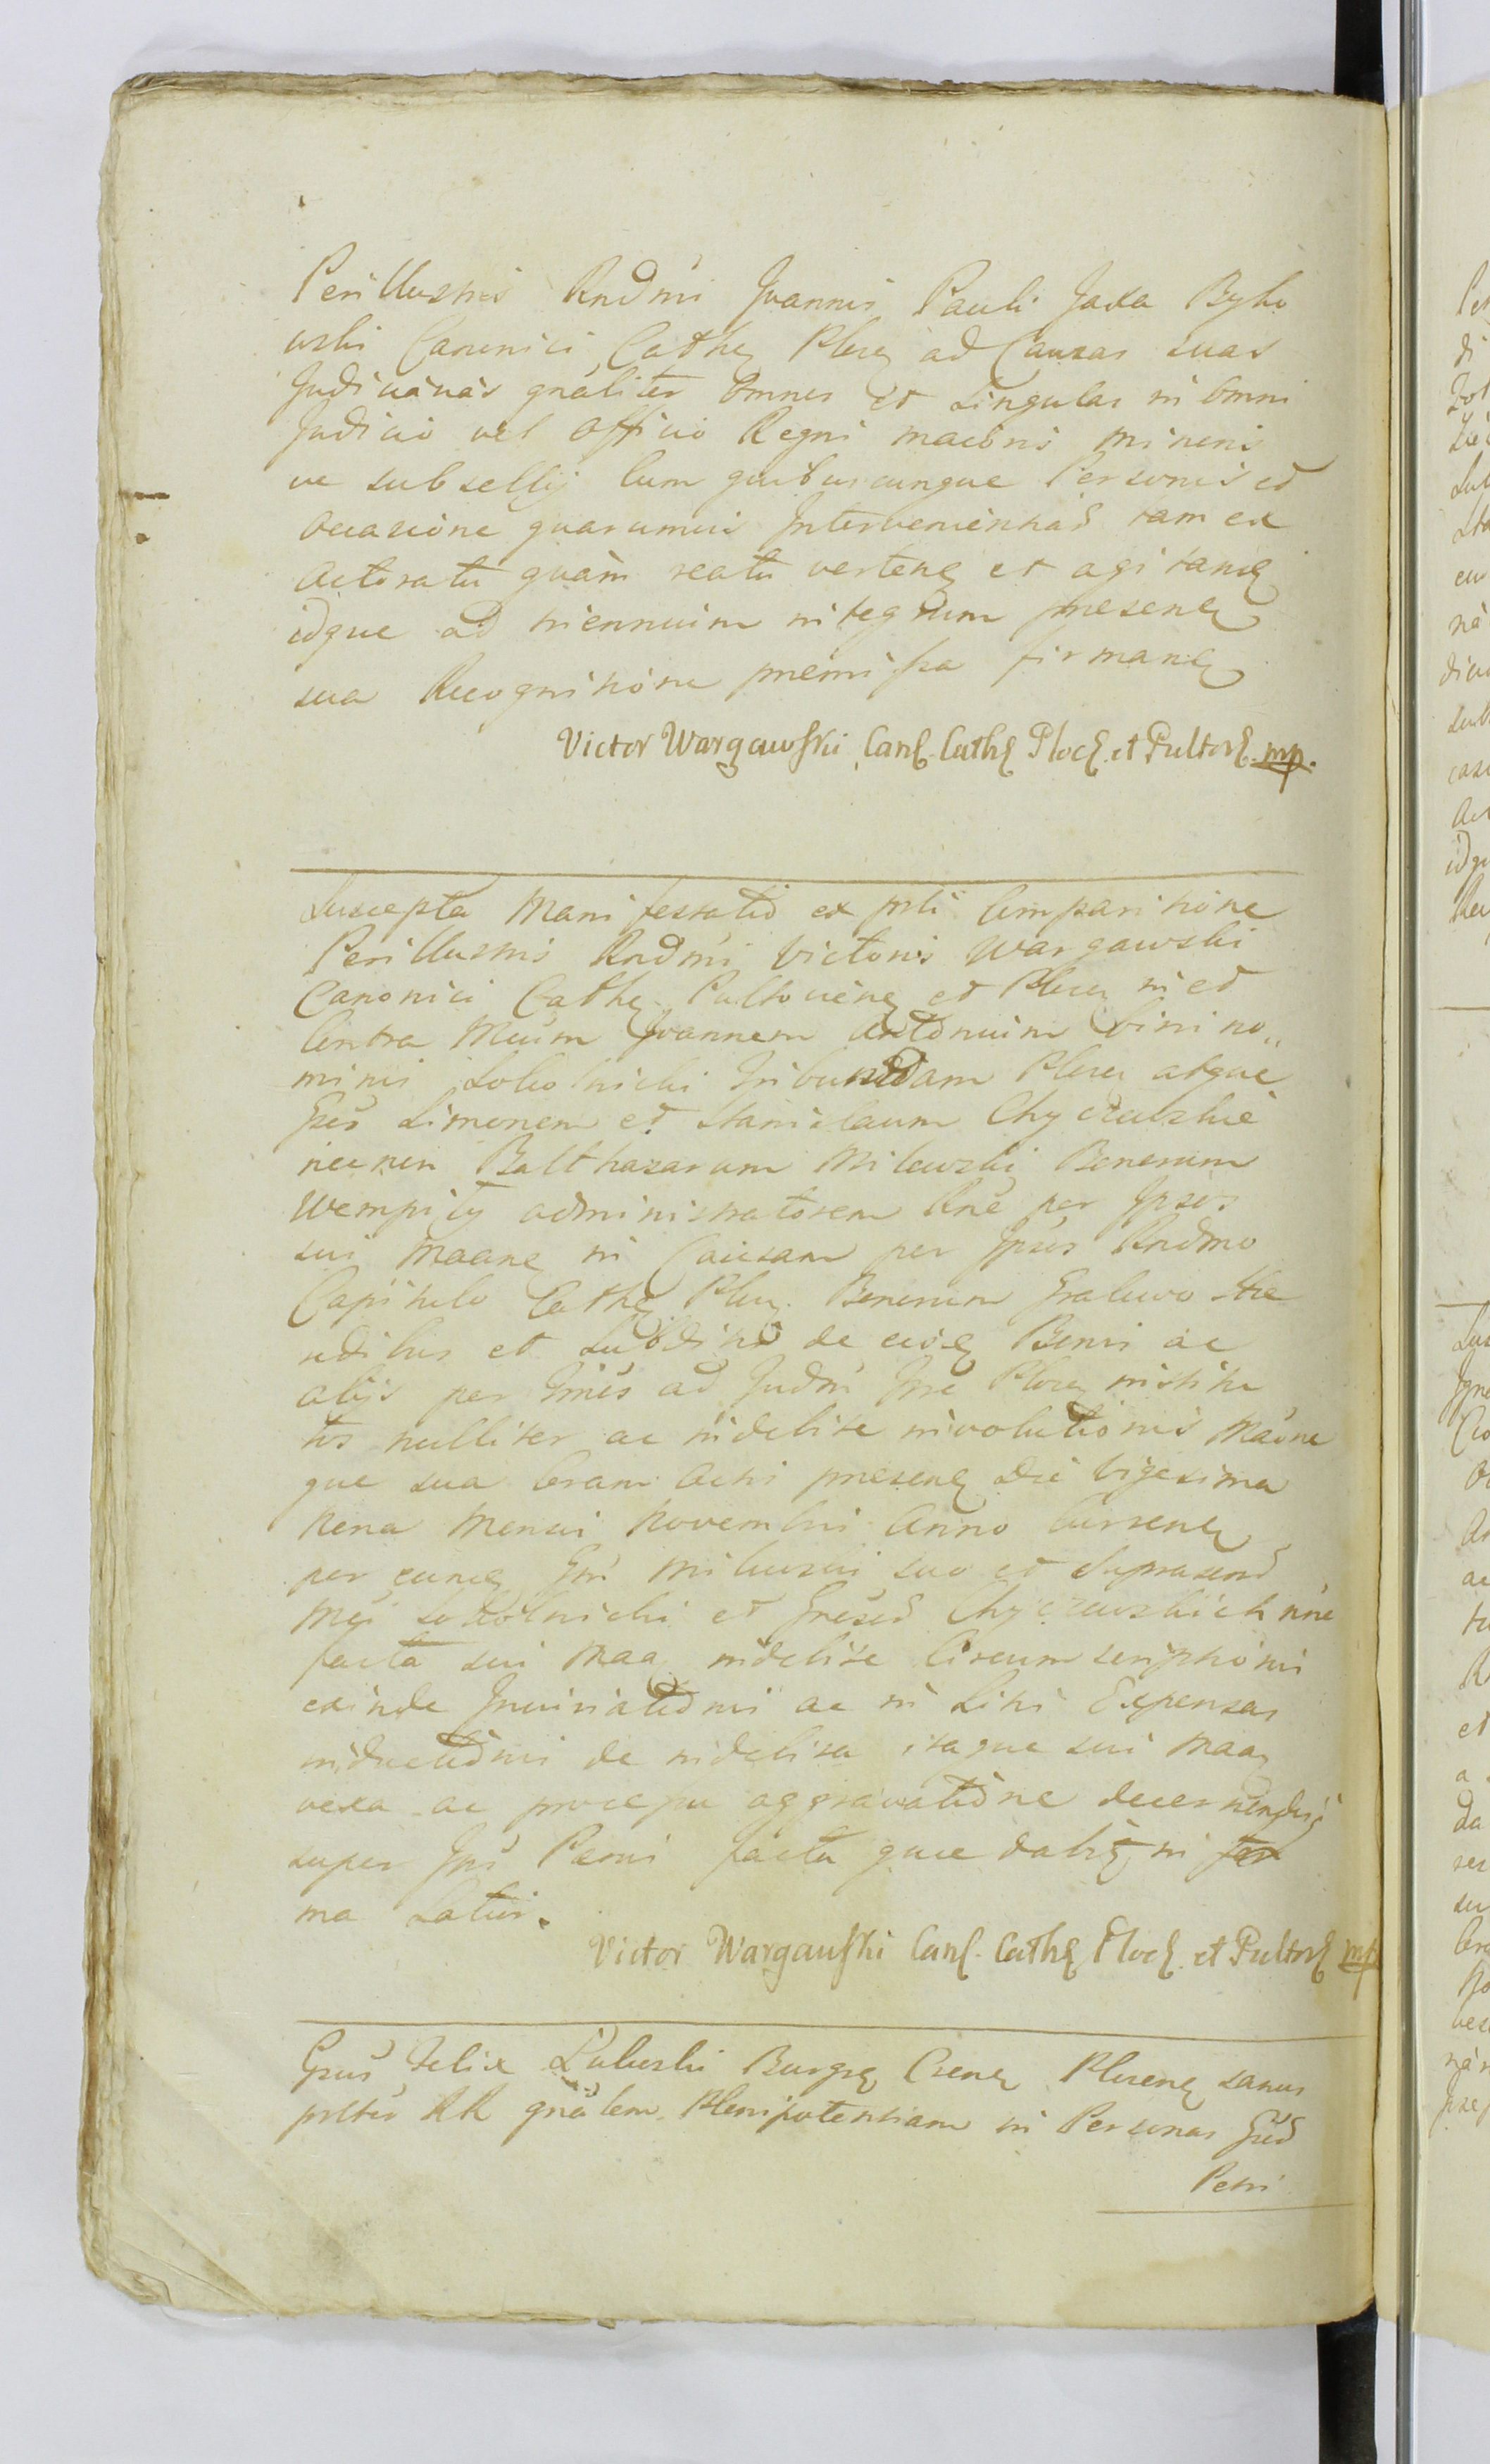 Perillusris Rndmi Joannis Pauli Jaxa Byko
wski Canonici Cathe Ploce ad Causas suas
Judiciarias gnaliter omnes et singulas in omni
Judicio vel officio Regni maioris minoris
ve subsellij cum quibuscunque Personis et
occasione quarumvis Intervenientias tam ex
Actoratu quam reatu verten et agitan
idque ad triennium integrum presen
sua Recognitione premissa firman
Victor Wargawski Can. Cath Ploc. et Pultov. mp.
Suscepta Manifestatio ex prli Comparitione
Perillusris Rndmi Victoris Wargawski
Canonici Cathe Pultovien et Ploce in et
Contra Mcum Joannem Antonium bini no„
minis Sokolnicki Tribunidam Ploce atque
Gres Simonem et Stanislaum Chyczewskie
necnon Balthazarum Milewski Bonorum
Wempiły administratorem Rne per Ipsos
sui Maane in Causam per Ipsus Rndmo
Capitulo Cathe Ploce. Bonorum Gralewo Hae
redibus et Subditis de eisd Bonis ac
alijs per Gnes ad Judm Grse Ploce institu
tos nulliter ac indebite involutionis Maone
que sua Coram Actis presen die vigesima
nona Mensis Novembris Anno curren
per eund Grm Milewski suo et suprascrid
Mci Sokolnicki et Gresed Chyczewskich nne
facta sui Maa indebite Circumscriptionis
exinde Iniuriationis ac in Liti Expensas
inductionis de indebita itaque sui Maa
vexa ac processu aggravatione decernendis
super Ipsi Parui facta quae dabit in for
ma Latiori.
Victor Wargawski Can. Cath Ploc. et Pultov mp
Grsus Felix Łubeski Burgr Csene Plocen sanus
prltr RR gnalem Plenipotentiam in Personas Gred
Petri